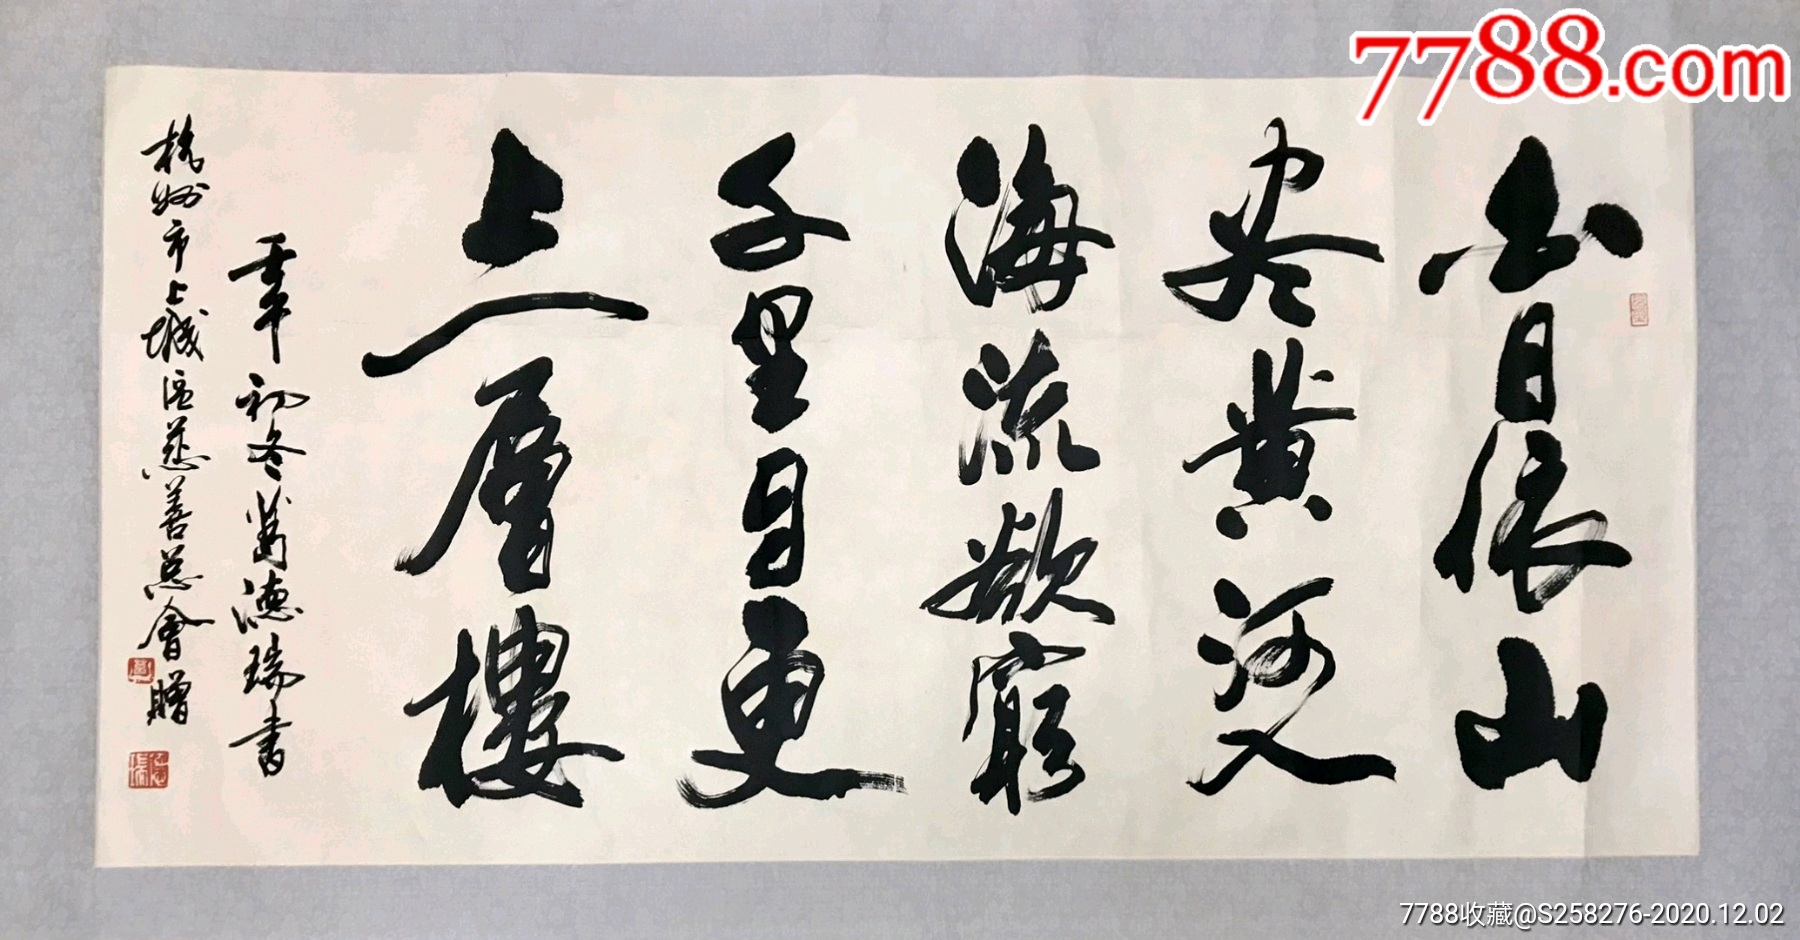 7788.com
白日依山
尽黄河入
海流欲窮
千里目更
上一層樓
初冬 德瑞書
杭州市上城區慈善总會贈
7788收藏@S258276-2020.12.02